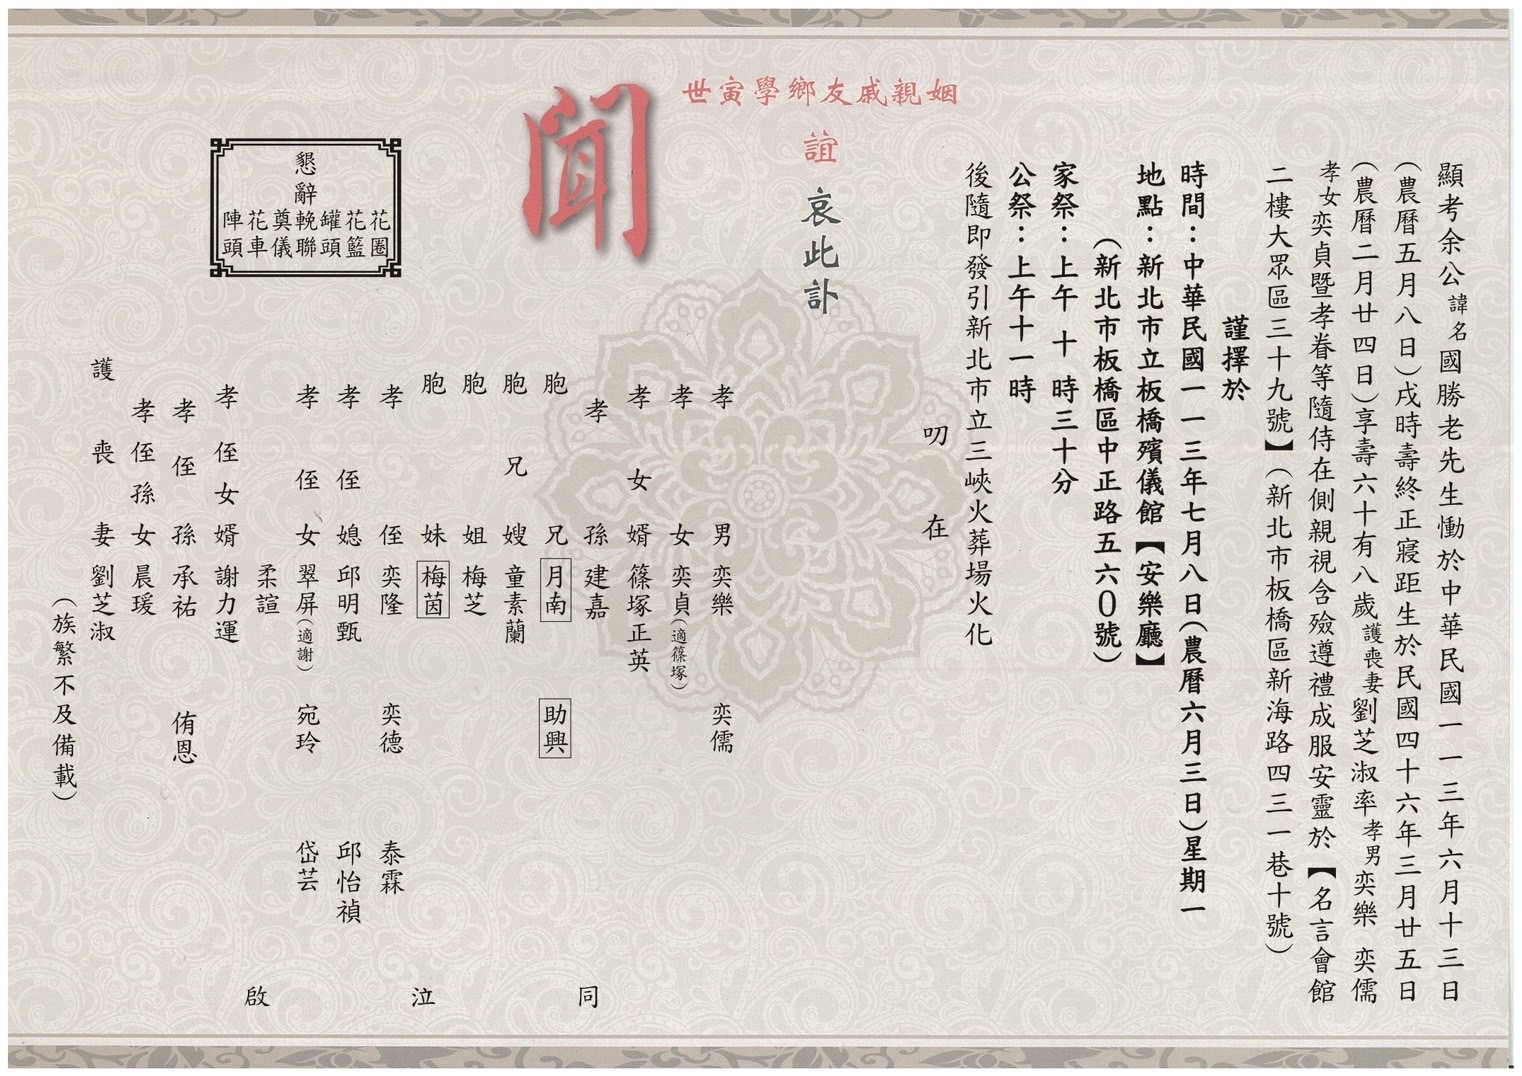 顯考余公諱名國勝老先生慟於中華民國一一三年六月十三日
(農曆五月八日)戌時壽終正寢距生於民國四十六年三月廿五日
(農曆二月廿四日)享壽六十有八歲護喪妻劉芝淑率孝男奕樂 奕儒
孝女奕貞暨孝眷等隨侍在側親視含殮遵禮成服安靈於【名言會館
二樓大眾區三十九號】(新北市板橋區新海路四三一巷十號)
謹擇於
時間:中華民國一一三年七月八日(農曆六月三日)星期一
地點:新北市立板橋殯儀館【安樂廳】
(新北市板橋區中正路五六0號)
家祭:上午 十 時三十分
公祭:上午十一時
後隨即發引新北市立三峽火葬場火化
叨 在
姻親戚友鄉學寅世
誼 哀此訃
聞
孝男 奕樂 奕儒
孝女 奕貞(適篠塚)
孝女婿 篠塚正英
孝孫 建嘉
胞兄 月南 助興
胞兄嫂 童素蘭
胞姐 梅芝
胞妹 梅茵
孝侄 奕隆 奕德 泰霖
孝侄媳 邱明甄 邱怡禎
孝侄女 翠屏(適謝) 宛玲 岱芸
柔諠
孝侄女婿 謝力運
孝侄孫 承祐 侑恩
孝侄孫女 晨瑗
護喪妻 劉芝淑
(族繁不及備載)
同 泣 啟
懇辭
花圈
花籃
罐頭
輓聯
奠儀
花車
陣頭